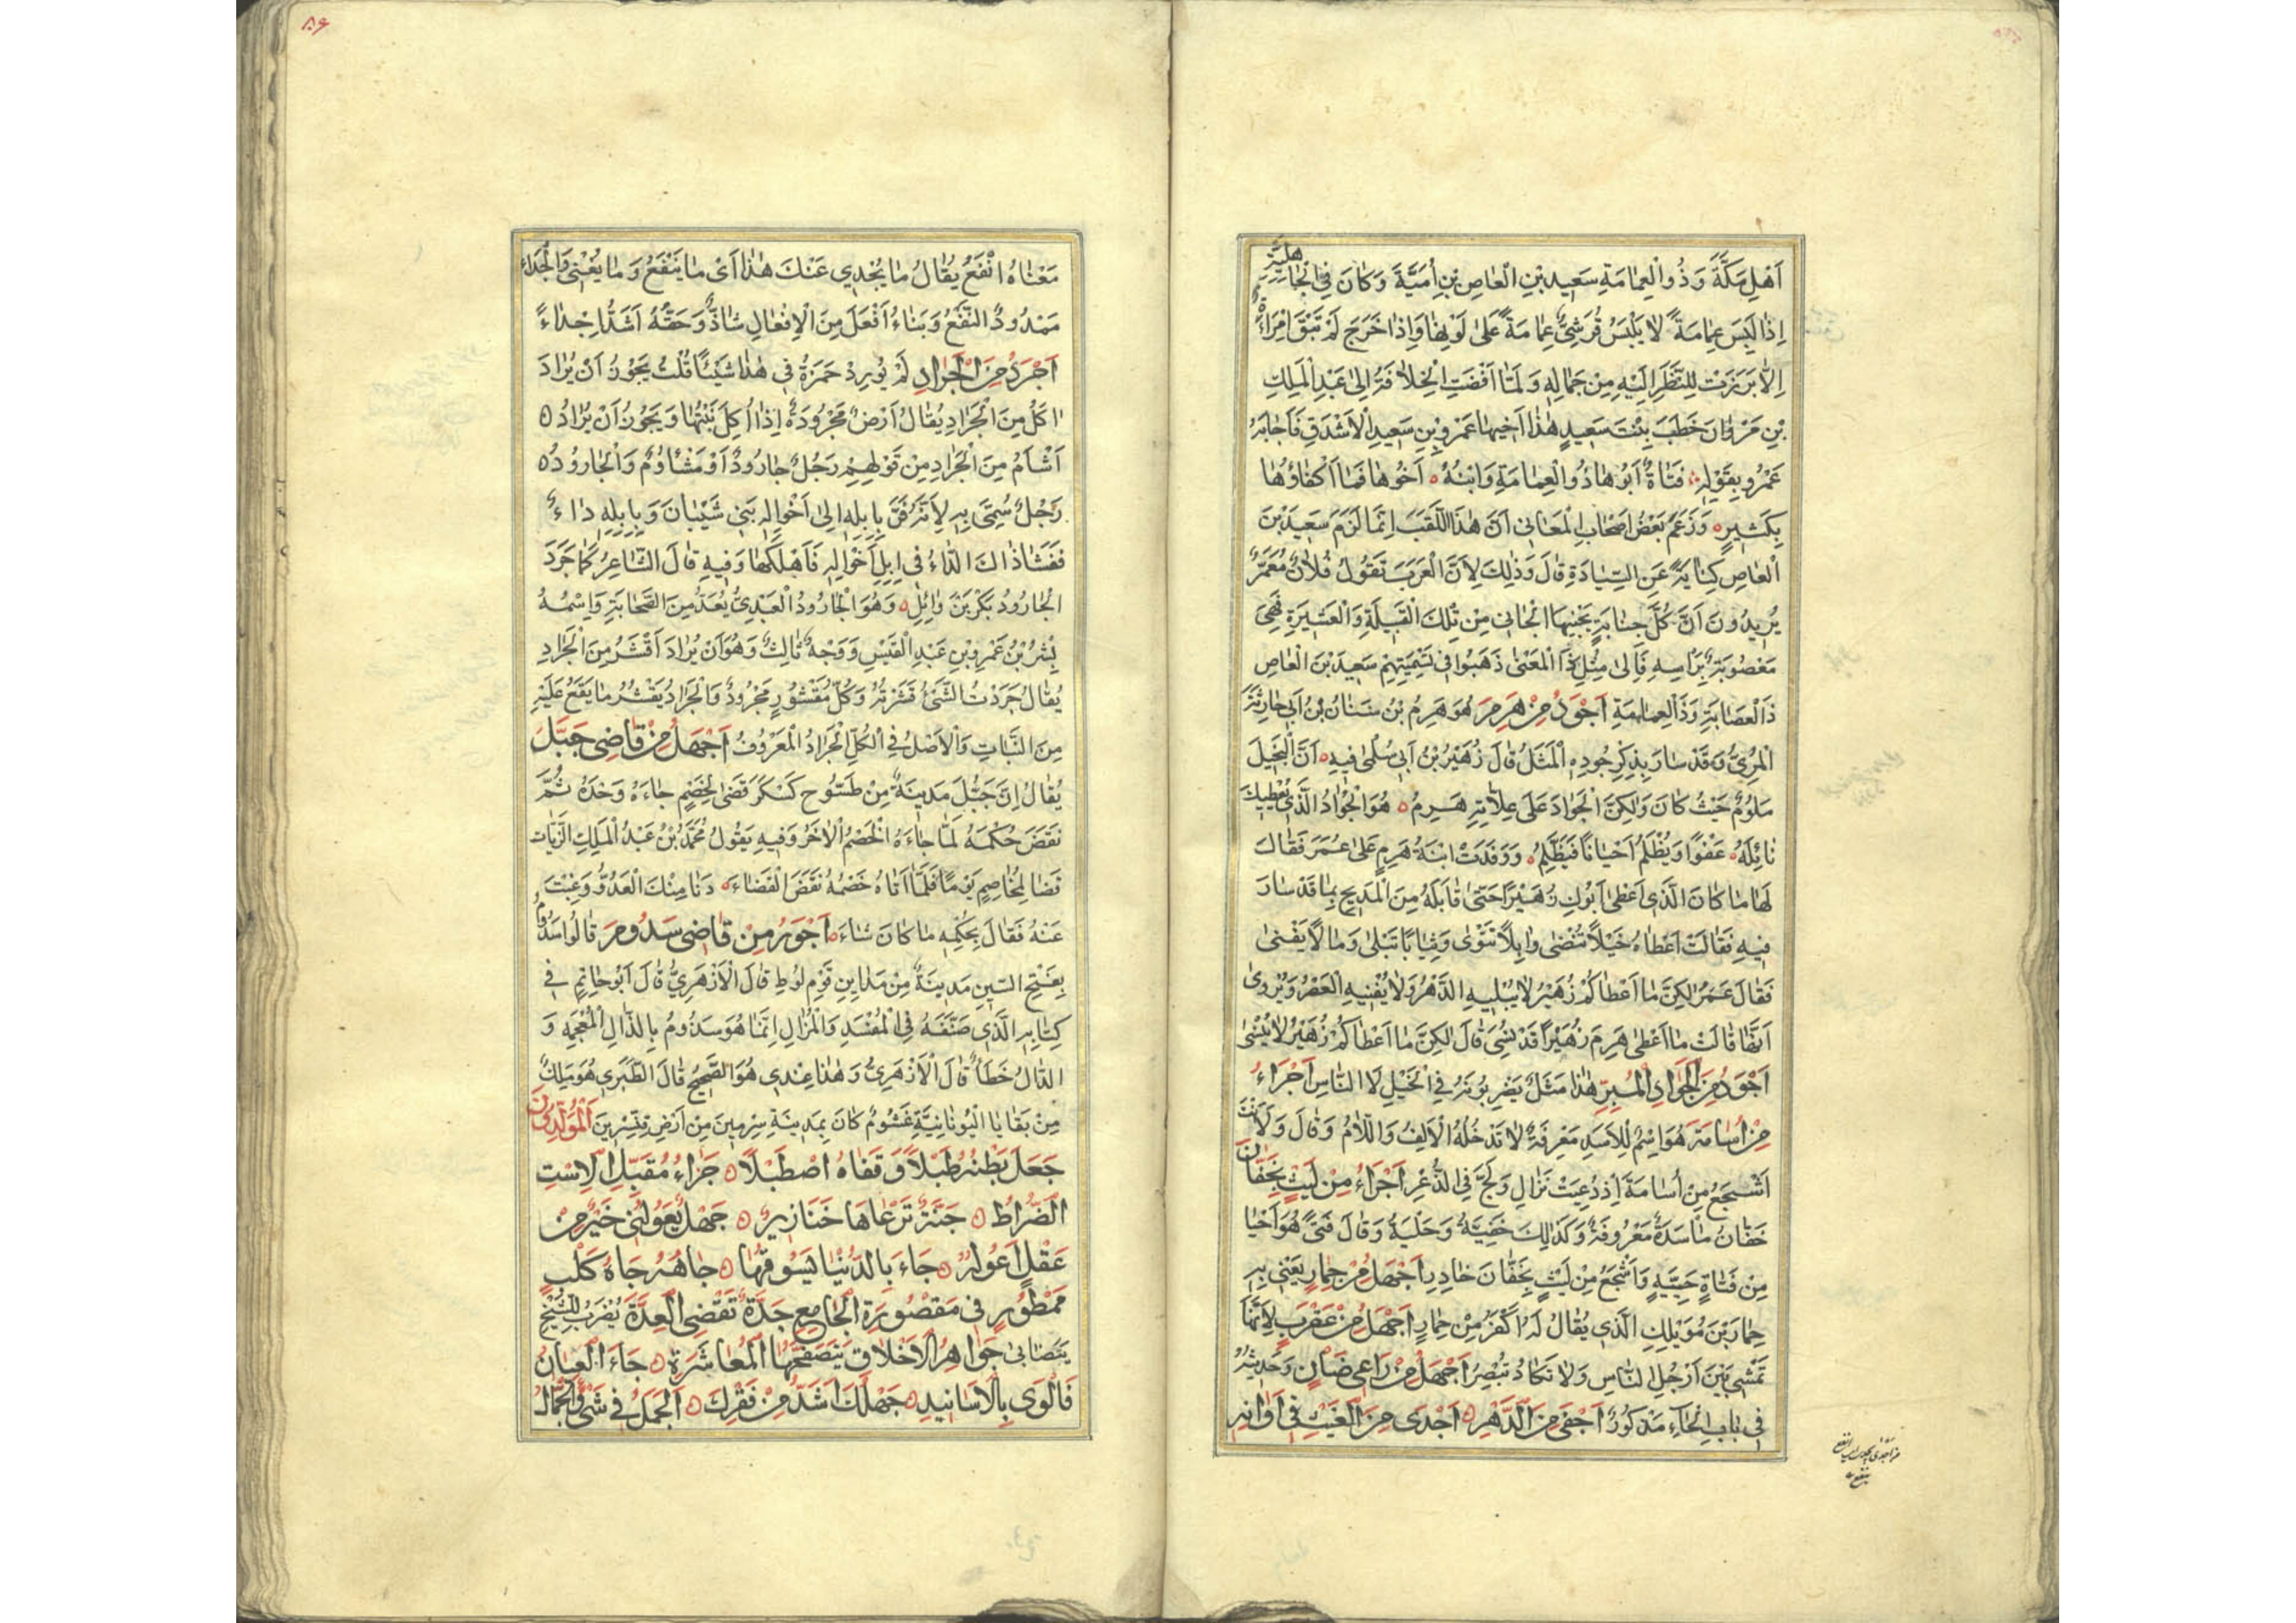 اَهْلِ مَكَّةَ وَذُو الْعِمَامَةِ سَعِيدِ بْنِ الْعَاصِ بْنِ اُمَيَّةَ وَكَانَ فِي الْجَاهِلِيَّةِ
اِذَا لَبِسَ عِمَامَةً لَا يَلْبَسُ قُرَشِيٌّ عِمَامَةً عَلَى لَوْنِهَا وَاِذَا خَرَجَ لَمْ تَبْقَ اِمْرَاَةٌ
اِلَّا بَرَزَتْ لِلنَّظَرِ اِلَيْهِ مِنْ جَمَالِهِ وَلَمَّا اَفْضَتِ الْخِلَافَةُ اِلَى عَبْدِ الْمَلِكِ
بْنِ مَرْوَانَ خَطَبَ بِنْتَ سَعِيدٍ هٰذَا اَخِيهَا عَمْرِو بْنِ سَعِيدِ الْاَشْدَقِ فَاَجَابَهُ
عَمْرٌو بِقَوْلِهِ فَتَاةٌ اَبُوهَا ذُو الْعِمَامَةِ وَابْنُهُ اَخُوهَا فَمَا اَكْفَاؤُهَا
بِكَثِيرٍ وَزَعَمَ بَعْضُ اَصْحَابِ الْمَعَانِي اَنَّ هٰذَا اللَّقَبَ اِنَّمَا لَزِمَ سَعِيدَ بْنَ
الْعَاصِ كِنَايَةً عَنِ السِّيَادَةِ قَالَ وَذٰلِكَ لِاَنَّ الْعَرَبَ تَقُولُ فُلَانٌ مُعَمَّمٌ
يُرِيدُونَ اَنَّ كُلَّ جِنَايَةٍ يَجْنِيهَا الْجَانِي مِنْ تِلْكَ الْقَبِيلَةِ وَالْعَشِيرَةِ فَهِيَ
مَعْصُوبَةٌ بِرَاْسِهِ فَاِلَى مِثْلِ ذَا الْمَعْنَى ذَهَبُوا فِي تَسْمِيَتِهِمْ سَعِيدَ بْنَ الْعَاصِ
ذَا الْعِصَابَةِ وَذَا الْعِمَامَةِ اَجْوَدُ مِنْ هَرِمٍ هُوَ هَرِمُ بْنُ سِنَانِ بْنِ اَبِي حَارِثَةَ
الْمُرِّيُّ وَقَدْ سَارَ بِذِكْرِ جُودِهِ الْمَثَلُ قَالَ زُهَيْرُ بْنُ اَبِي سُلْمَى فِيهِ اَنَّ الْبَخِيلَ
مَلُومٌ حَيْثُ كَانَ وَلٰكِنَّ الْجَوَادَ عَلَى عِلَّاتِهِ هَرِمُ هُوَ الْجَوَادُ الَّذِي يُعْطِيكَ
نَائِلَهُ عَفْوًا وَيُظْلَمُ اَحْيَانًا فَيَظَّلِمُ وَوَفَدَتِ ابْنَةُ هَرِمٍ عَلَى عُمَرَ فَقَالَ
لَهَا مَا كَانَ الَّذِي اَعْطَى اَبُوكِ زُهَيْرًا حَتَّى قَابَلَهُ مِنَ الْمَدِيحِ بِمَا قَدْ سَارَ
فِيهِ فَقَالَتْ اَعْطَاهُ خَيْلًا تُنْضَى وَاِبِلًا تَتْوَى وَثِيَابًا تَبْلَى وَمَالًا يَفْنَى
فَقَالَ عُمَرُ لٰكِنَّ مَا اَعْطَاكُمْ زُهَيْرٌ لَا يُبْلِيهِ الدَّهْرُ وَلَا يُفْنِيهِ الْعَصْرُ وَيُرْوَى
اَنَّهَا قَالَتْ مَا اَعْطَى هَرِمٌ زُهَيْرًا قَدْ نُسِيَ قَالَ لٰكِنَّ مَا اَعْطَاكُمْ زُهَيْرٌ لَا يُنْسَى
اَجْوَدُ مِنَ الْجَوَادِ الْمُبِرِّ هٰذَا مَثَلٌ يَضْرِبُونَهُ فِي الْخَيْلِ لَا النَّاسِ اَجْرَاُ
مِنْ اُسَامَةَ هُوَ اِسْمٌ لِلْاَسَدِ مَعْرِفَةٌ لَا تَدْخُلُهُ الْاَلِفُ وَاللَّامُ وَقَالَ وَلَاَنْتَ
اَشْجَعُ مِنْ اُسَامَةَ اِذْ دُعِيَتْ نَزَالِ وَلُجَّ فِي الذُّعْرِ اَجْرَاُ مِنْ لَيْثٍ بِخَفَّانَ
خَفَّانُ مَاْسَدَةٌ مَعْرُوفَةٌ وَكَذٰلِكَ خَفِيَّةٌ وَحَلْيَةٌ وَقَالَ فَتًى هُوَ اَحْيَا
مِنْ فَتَاةٍ حَيِيَّةٍ وَاَشْجَعُ مِنْ لَيْثٍ بِخَفَّانَ خَادِرِ اَجْهَلُ مِنْ حِمَارٍ يَعْنِي بِهِ
حِمَارَ بْنَ مُوَيْلِكِ الَّذِي يُقَالُ لَهُ اَكْفَرُ مِنْ حِمَارٍ اَجْهَلُ مِنْ عَقْرَبٍ لِاَنَّهَا
تَمْشِي بَيْنَ اَرْجُلِ النَّاسِ وَلَا تَكَادُ تُبْصِرُ اَجْهَلُ مِنْ رَاعِي ضَاْنٍ وَحَدِيثُهُ
فِي بَابِ الْحَاءِ مَذْكُورٌ اَجْفَى مِنَ الدَّهْرِ اَجْدَى مِنَ الْغَيْثِ فِي اَوَانِهِ
٨٦
مَعْنَاهُ اَنْفَعُ يُقَالُ مَا يُجْدِي عَنْكَ هٰذَا اَيْ مَا يَنْفَعُ وَمَا يُغْنِي وَالْجَدَاءُ
مَمْدُودٌ النَّفْعُ وَبِنَاءُ اَفْعَلَ مِنَ الْاِفْعَالِ شَاذٌّ وَحَقُّهُ اَشَدُّ اِجْدَاءً
اَجْرَدُ مِنَ الْجَرَادِ لَمْ يُورِدْ حَمْزَةُ فِي هٰذَا شَيْئًا قُلْتُ يَجُوزُ اَنْ يُرَادَ
اٰكَلُ مِنَ الْجَرَادِ يُقَالُ اَرْضٌ مَجْرُودَةٌ اِذَا اُكِلَ نَبْتُهَا وَيَجُوزُ اَنْ يُرَادُ
اَشْاَمُ مِنَ الْجَرَادِ مِنْ قَوْلِهِمْ رَجُلٌ جَارُودٌ اَوْ مَشْاُومٌ وَالْجَارُودُ
رَجُلٌ سُمِّيَ بِهِ لِاَنَّهُ فَرَّ بِاِبِلِهِ اِلَى اَخْوَالِهِ بَنِي شَيْبَانَ وَبِاِبِلِهِ دَاءٌ
فَفَشَا ذَاكَ الدَّاءُ فِي اِبِلِ اَخْوَالِهِ فَاَهْلَكَهَا وَفِيهِ قَالَ الشَّاعِرُ كَمَا جَرَدَ
الْجَارُودُ بَكْرَ بْنَ وَائِلِ وَهُوَ الْجَارُودُ الْعَبْدِيُّ يُعَدُّ مِنَ الصَّحَابَةِ وَاسْمُهُ
بِشْرُ بْنُ عَمْرِو بْنِ عَبْدِ الْقَيْسِ وَوَجْهٌ ثَالِثٌ وَهُوَ اَنْ يُرَادَ اَقْشَرُ مِنَ الْجَرَادِ
يُقَالُ جَرَدْتُ الشَّيْءَ قَشَرْتُهُ وَكُلُّ مَقْشُورٍ مَجْرُودٌ وَالْجَرَادُ يَقْشُرُ مَا يَقَعُ عَلَيْهِ
مِنَ النَّبَاتِ وَالْاَصْلُ فِي الْكُلِّ الْجَرَادُ الْمَعْرُوفُ اَجْهَلُ مِنْ قَاضِي جَبُّلَ
يُقَالُ اِنَّ جَبُّلَ مَدِينَةٌ مِنْ طَسُّوجِ كَسْكَرَ قَضَى لِخَصْمٍ جَاءَهُ وَحْدَهُ ثُمَّ
نَقَضَ حُكْمَهُ لَمَّا جَاءَهُ الْخَصْمُ الْاٰخَرُ وَفِيهِ يَقُولُ مُحَمَّدُ بْنُ عَبْدِ الْمَلِكِ الزَّيَّات
قَضَا لِمُخَاصِمٍ يَوْمًا فَلَمَّا اَتَاهُ خَصْمُهُ نَقَضَ الْقَضَاءَ دَنَا مِنْكَ الْعَدُوُّ وَغِبْتَ
عَنْهُ فَقَالَ بِحُكْمِهِ مَا كَانَ شَاءَ اَجْوَرُ مِنْ قَاضِي سَدُومَ قَالُوا سَدُومُ
بِفَتْحِ السِّينِ مَدِينَةٌ مِنْ مَدَاينِ قَوْمِ لُوطٍ قَالَ الْاَزْهَرِيُّ قَالَ اَبُو حَاتِمٍ فِي
كِتَابِهِ الَّذِي صَنَّفَهُ فِي الْمُفْسَدِ وَالْمُزَالِ اِنَّمَا هُوَ سَذُومُ بِالذَّالِ الْمُعْجَمَةِ وَ
الدَّالُ خَطَاٌ قَالَ الْاَزْهَرِيُّ وَهٰذَا عِنْدِي هُوَ الصَّحِيحُ قَالَ الطَّبَرِي هُوَ مَلِكٌ
مِنْ بَقَايَا الْيُونَانِيَّةِ غَشُومٌ كَانَ بِمَدِينَةِ سِرْمِينَ مِنْ اَرْضِ قِنَّسْرِينَ اَلْمُوَلَّدُونَ
جَعَلَ بَطْنَهُ طَبْلًا وَقَفَاهُ اِصْطَبْلًا جَزَاءُ مُقَبِّلِ الْاِسْتِ
الضُّرَاطُ جَنَّةٌ تَرْعَاهَا خَنَازِيرُ جَهْلٌ يَعُولُنِي خَيْرٌ مِنْ
عَقْلٍ اَعُولُهُ جَاءَ بِالدُّنْيَا يَسُوقُهَا جَاهُهُ جَاهُ كَلْبٍ
مَمْطُورٍ فِي مَقْصُورَةِ الْجَامِعِ جَدَّةٌ تَقْضِي الْعِدَّةَ يُضْرَبُ لِلشَّيْخِ
يَتَصَابَى جَوَاهِرُ الْاَخْلَاقِ يَتَصَفَّحُهَا الْمُعَاشَرَةِ جَاءَ الْعِيَانُ
فَاَلْوَى بِالْاَسَانِيدِ جَهْلُكَ اَشَدُّ مِنْ فَقْرِكَ اَلْجَمَلُ فِي شَيْءٍ وَالْجَمَّالُ